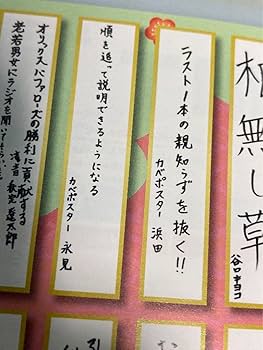 根無し草
谷口キヨコ
ラスト1本の親知らずを抜く!!
カベポスター 浜田
順を追って説明できるようになる
カベポスター 永見
オリックスバファローズの勝利に貢献する
老若男女にラジオを聞いてもらい